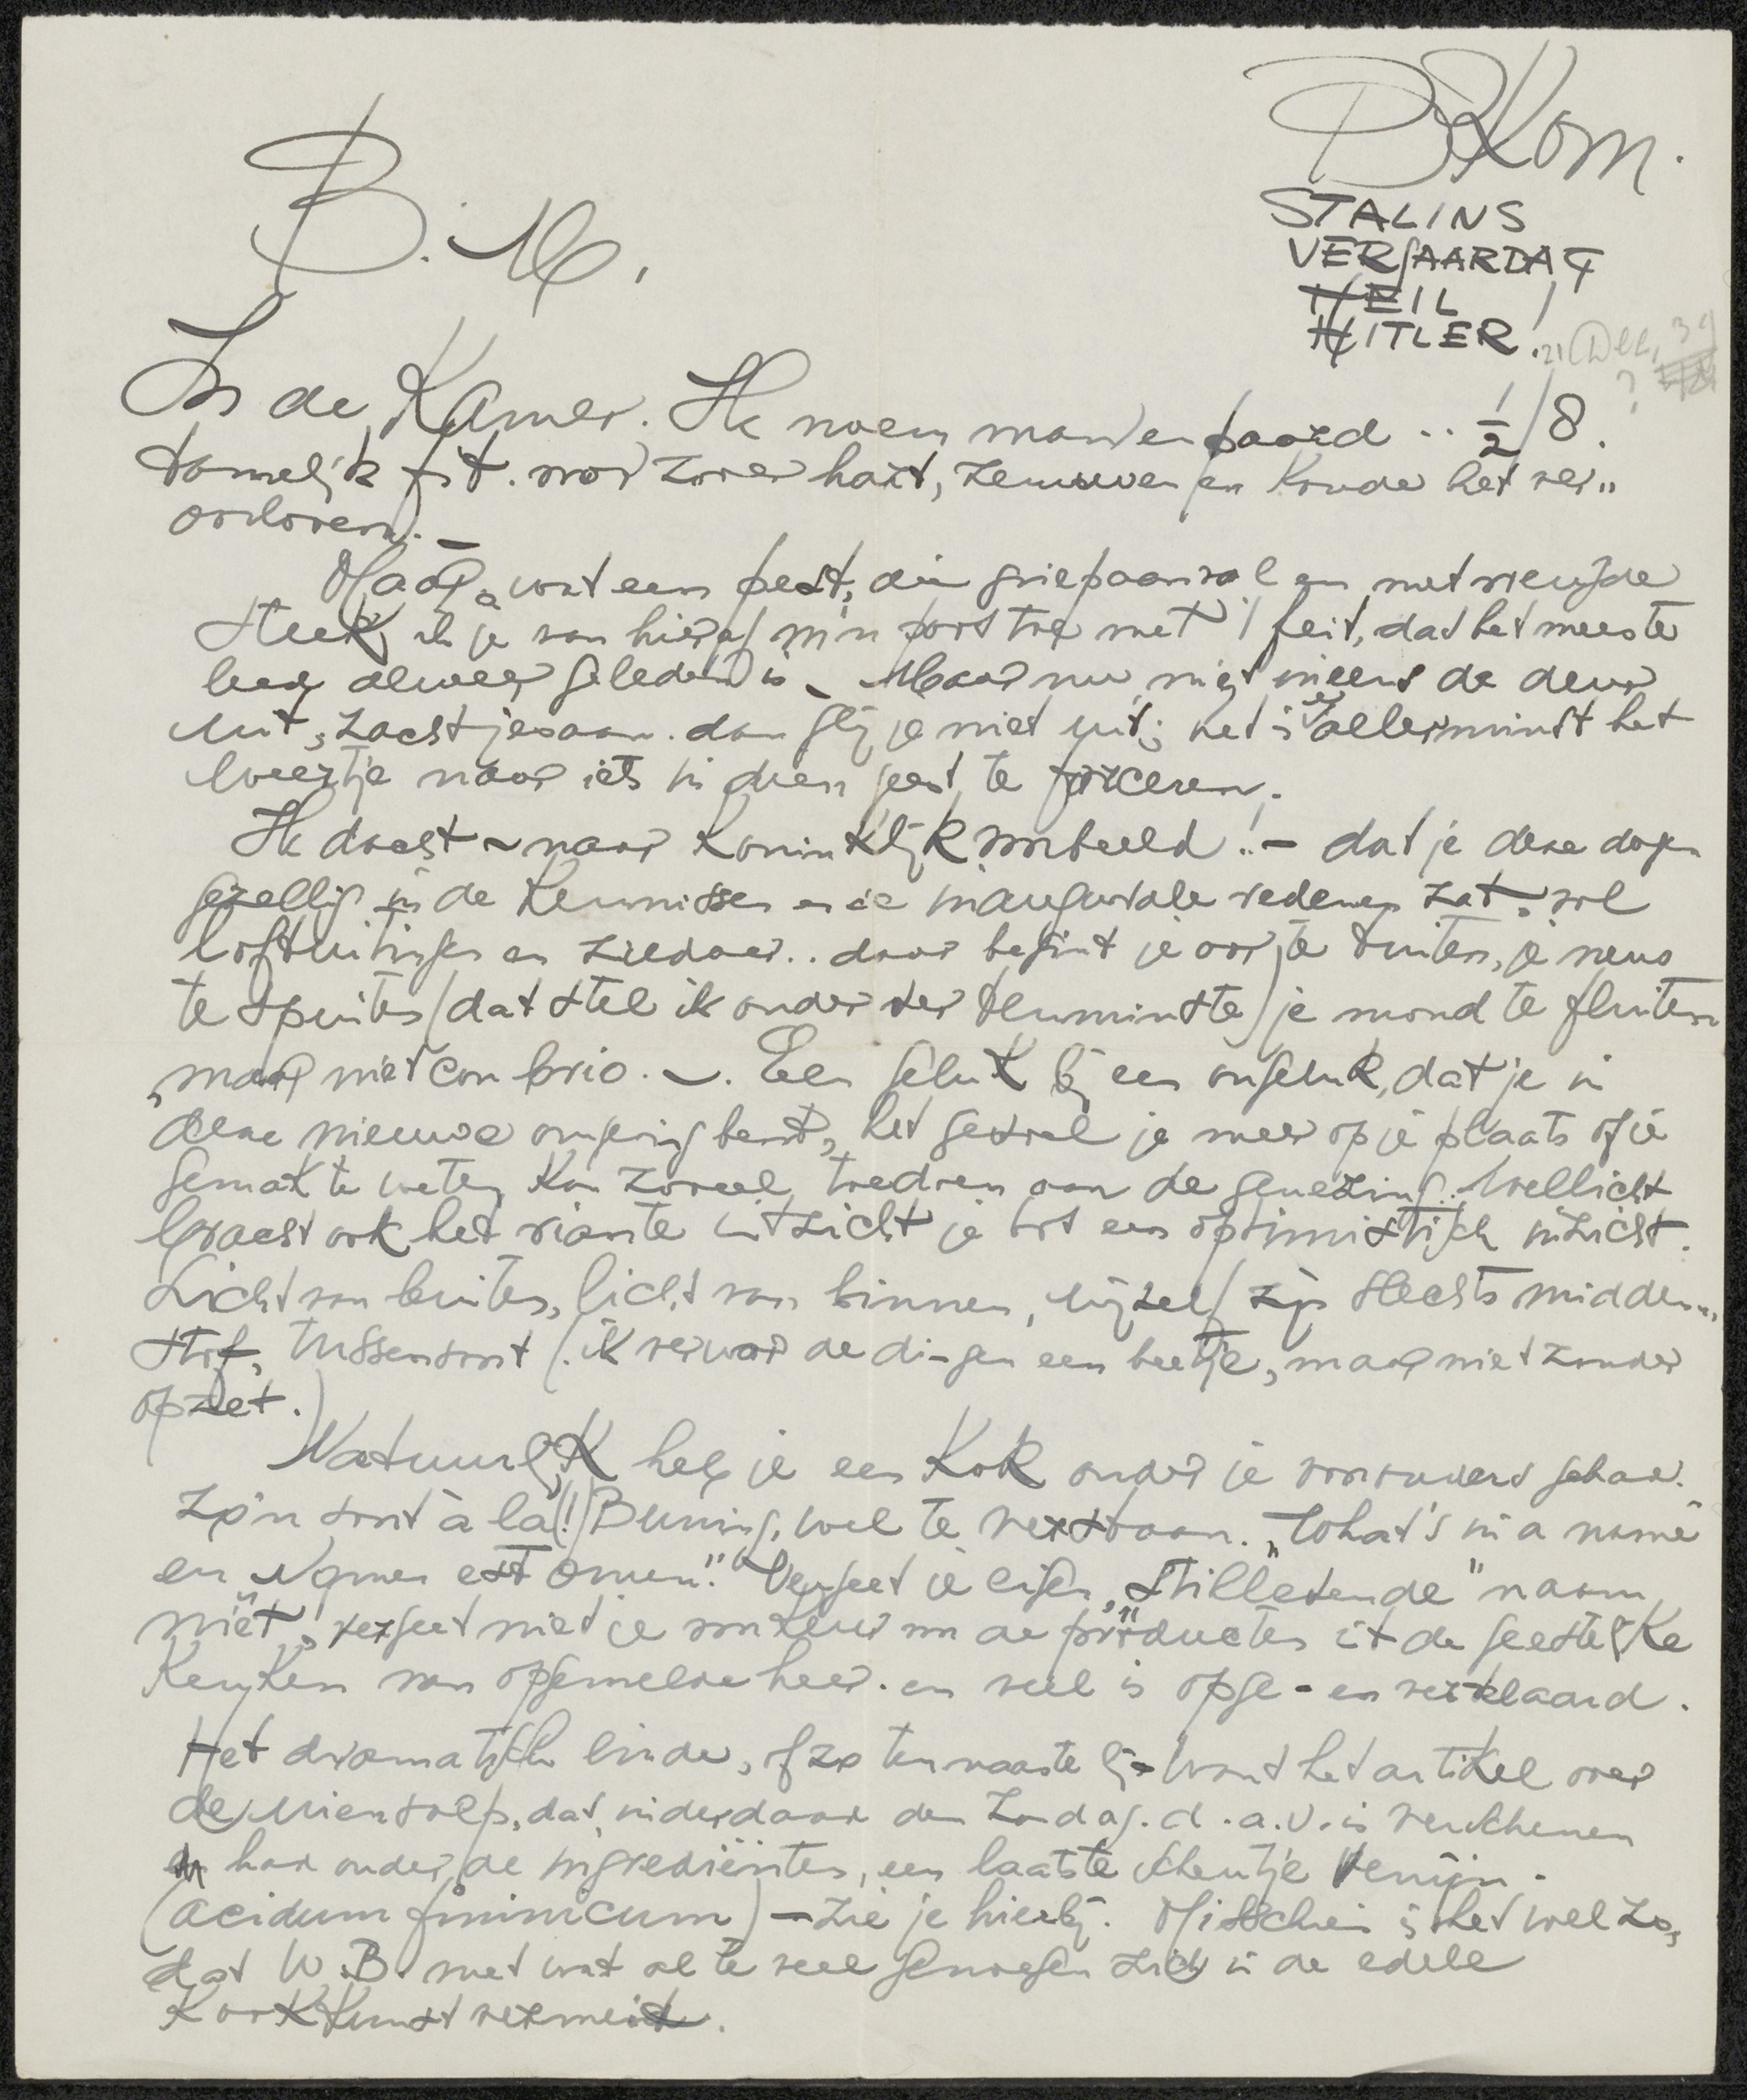 B Kom.
STALINS
VERJAARDAG
HEIL
HITLER!
21 Dec. 39
?
B. M.
In de Kamer. Ik noem man en paard .. ½/8.
tamelijk fit. voor zover hart, zenuwen en koude het ver„
oorloven. —
Maar, wat een pest, die griepaanval en met vreugde
steek ik je van hieraf m'n poot toe met 't feit, dat het meeste
leed alweer geleden is. Maar nu niet ineens de deur
uit, zachtjesaan. dan glij je niet uit; het is er allerminst het
weertje naar iets in dien geest te forceren.
Ik dacht – naar koninklijk voorbeeld! – dat je deze dagen
gezellig in de kennissen en de inaugurale redenen zat, vol
loftuitingen en ziedaar.. daar begint je oor te tuiten, je neus
te spuiten (dat stel ik onder ter tenminste) je mond te fluiten
maar niet con brio. –. Een geluk bij een ongeluk, dat je in
deze nieuwe omgeving bent, het gevoel je meer op je plaats of je
gemak te weten kan zoveel toedoen aan de genezing. Wellicht
bracht ook het riante uitzicht je tot een optimistisch inzicht.
Licht van buiten, licht van binnen, wijzelf zijn slechts midden„
stof, tussensoort (ik verwar de dingen een beetje, maar niet zonder
opzet.)
Natuurlijk heb je een Kok onder je voorouders gehad.
Zo'n soort à la (!) Buning, wel te verstaan. „What's in a name"
en „Nomen est omen". Vergeet je eigen „stilletende" naam
niet, vergeet niet je voorkeur voor de producten uit de geestelijke
keuken van opgemelde heer. en veel is opge- en verklaard.
Het dramatisch einde, of zo ten naaste bij – want het artikel over
de Mientoelp, dat inderdaad den Zondag. d.a.v. is verschenen
en had onder de ingrediënten, een laatste scheutje venijn.
(acidum fominicum) – zie je hierbij. Misschien is het wel zo,
dat W.B. met wat al te veel genoegen zich in de edele
Kookkunst vermeit.